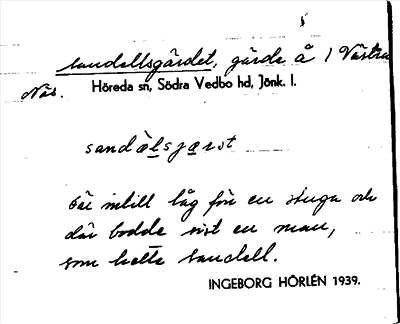 sandellsgärdet, gärde å 1 Västra
Näs. Höreda sn, Södra Vedbo hd, Jönk. l.
sandèlsjæret
intill låg för en stuga och
där bodde visst en man,
som hette Sandell.
INGEBORG HÖRLÉN 1939.